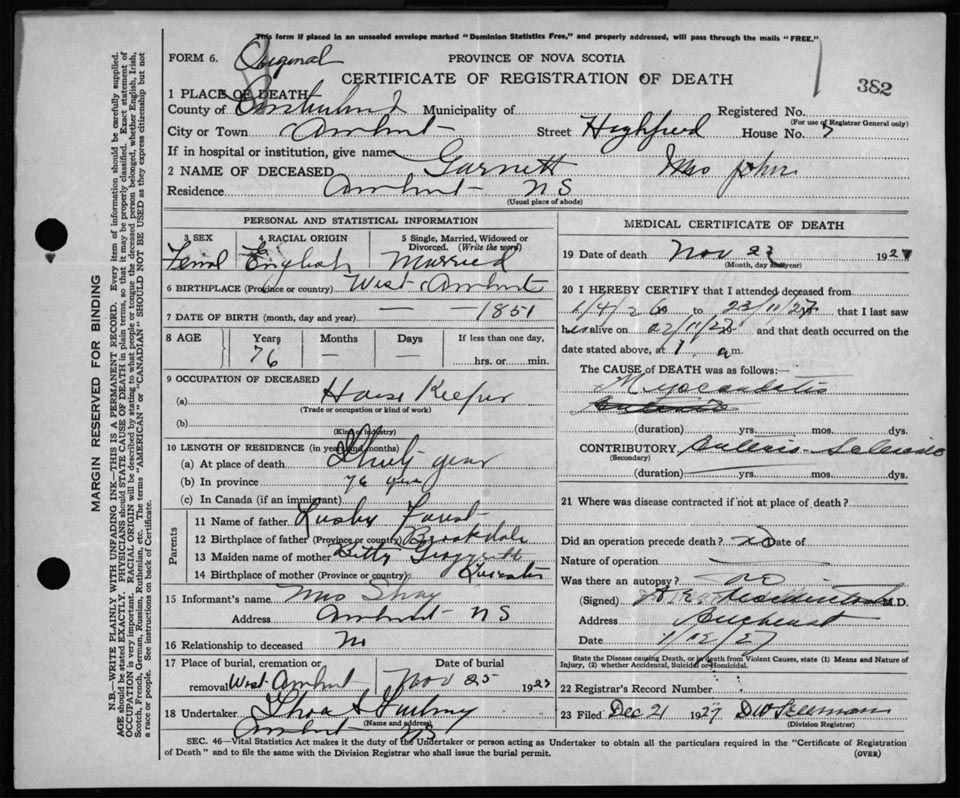 This form if placed in an unsealed envelope marked "Dominion Statistics Free," and properly addressed, will pass through the mails "FREE."
FORM 6. Original PROVINCE OF NOVA SCOTIA
CERTIFICATE OF REGISTRATION OF DEATH 382
1 PLACE OF DEATH
County of Cumberland Municipality of Registered No.
(For use of Registrar General only)
City or Town Amherst Street Highfield House No. 7
If in hospital or institution, give name
2 NAME OF DECEASED Garnett Mrs John
Residence Amherst NS
(Usual place of abode)
PERSONAL AND STATISTICAL INFORMATION
3 SEX 4 RACIAL ORIGIN 5 Single, Married, Widowed or Divorced. (Write the word)
Femal English Married
6 BIRTHPLACE (Province or country) West Amherst
7 DATE OF BIRTH (month, day and year) — — 1851
8 AGE Years Months Days If less than one day,
76 — — hrs. or min.
9 OCCUPATION OF DECEASED
(a) House Keeper
(Trade or occupation or kind of work)
(b)
(Kind of industry)
10 LENGTH OF RESIDENCE (in years and months)
(a) At place of death
(b) In province 76
(c) In Canada (if an immigrant)
Parents
11 Name of father Lusby
12 Birthplace of father (Province or country) Brookdale
13 Maiden name of mother
14 Birthplace of mother (Province or country)
15 Informant's name Mrs
Address Amherst NS
16 Relationship to deceased
17 Place of burial, cremation or removal West Amherst Date of burial Nov 25 1927
18 Undertaker
(Name and address)
Amherst NS
MEDICAL CERTIFICATE OF DEATH
19 Date of death Nov 23 1927
(Month, day and year)
20 I HEREBY CERTIFY that I attended deceased from
to 23/11/27 that I last saw
her alive on 22/11/27 and that death occurred on the
date stated above, at 1 a m.
The CAUSE of DEATH was as follows:
Myocarditis
(duration) yrs. mos. dys.
CONTRIBUTORY
(Secondary)
(duration) yrs. mos. dys.
21 Where was disease contracted if not at place of death?
Did an operation precede death? no Date of
Nature of operation
Was there an autopsy? no
(Signed) M.D.
Address Amherst
Date 1/12/27
State the Disease causing Death, or in death from Violent Causes, state (1) Means and Nature of
Injury, (2) whether Accidental, Suicidal or Homicidal.
22 Registrar's Record Number
23 Filed Dec 21 1927
(Division Registrar)
SEC. 46—Vital Statistics Act makes it the duty of the Undertaker or person acting as Undertaker to obtain all the particulars required in the "Certificate of Registration
of Death" and to file the same with the Division Registrar who shall issue the burial permit. (OVER)
MARGIN RESERVED FOR BINDING
N.B.—WRITE PLAINLY WITH UNFADING INK—THIS IS A PERMANENT RECORD. Every item of information should be carefully supplied.
AGE should be stated EXACTLY. PHYSICIANS should STATE CAUSE OF DEATH in plain terms, so that it may be properly classified. Exact statement of
OCCUPATION is very important. RACIAL ORIGIN will be described by stating to what people or tongue the deceased person belonged, whether English, Irish,
Scotch, French, German, Russian, Ruthenian, etc. The terms "AMERICAN" or "CANADIAN" SHOULD NOT BE USED as they express citizenship but not
a race or people. See instructions on back of Certificate.